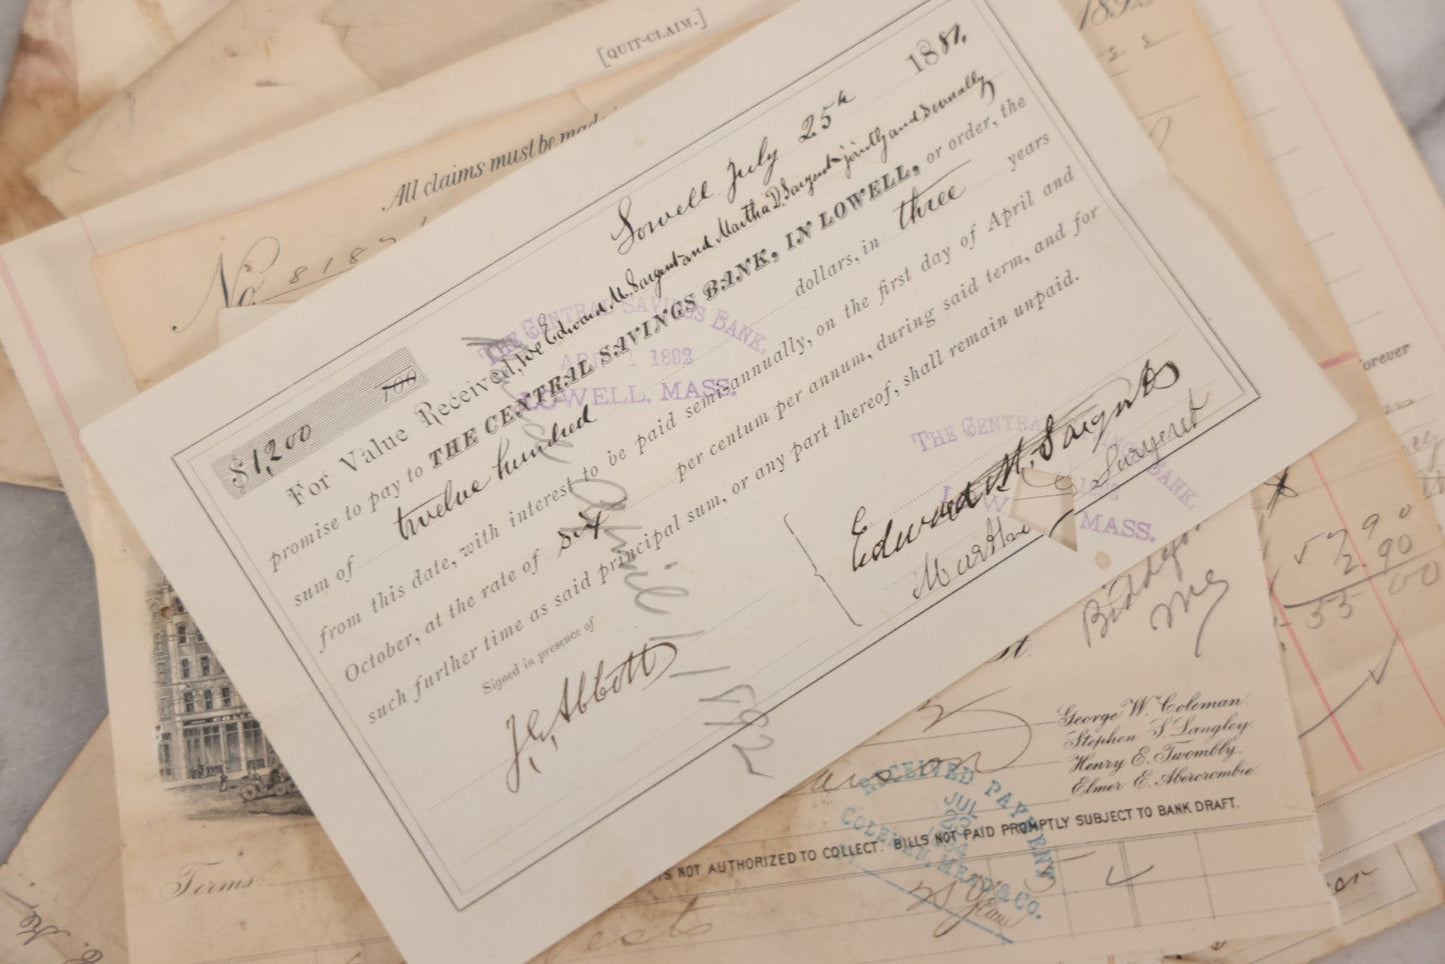 [QUIT-CLAIM.]
All claims must be made
No. 8182
$1,200
Lowell July 25th 1881.
For Value Received, We Edward M. Sargent and Martha D. Sargent jointly and severally
promise to pay to THE CENTRAL SAVINGS BANK, IN LOWELL, or order, the
sum of twelve hundred dollars, in three years
from this date, with interest to be paid semi-annually, on the first day of April and
October, at the rate of six per centum per annum, during said term, and for
such further time as said principal sum, or any part thereof, shall remain unpaid.
Signed in presence of
J. G. Abbott
Edward M. Sargent
Martha Sargent
THE CENTRAL SAVINGS BANK,
APR 1 1892
LOWELL, MASS.
THE CENTRAL SAVINGS BANK,
1892
LOWELL, MASS.
April 1 1892
forever
Me
George W. Coleman.
Stephen S. Langley.
Henry E. Twombly.
Elmer E. Abercrombie.
IS NOT AUTHORIZED TO COLLECT. BILLS NOT PAID PROMPTLY SUBJECT TO BANK DRAFT.
RECEIVED PAYMENT
JUL
COLEMAN, MEAD & CO.
Terms